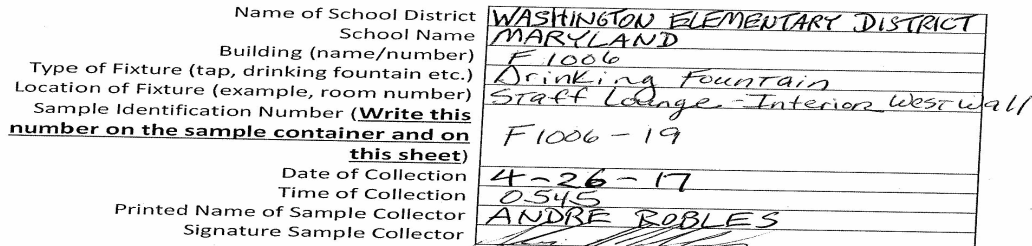 Name of School District WASHINGTON ELEMENTARY DISTRICT
School Name MARYLAND
Building (name/number) F 1006
Type of Fixture (tap, drinking fountain etc.) Drinking Fountain
Location of Fixture (example, room number) Staff Lounge - Interior West Wall
Sample Identification Number (Write this
number on the sample container and on F1006-19
this sheet)
Date of Collection 4-26-17
Time of Collection 0545
Printed Name of Sample Collector ANDRE ROBLES
Signature Sample Collector